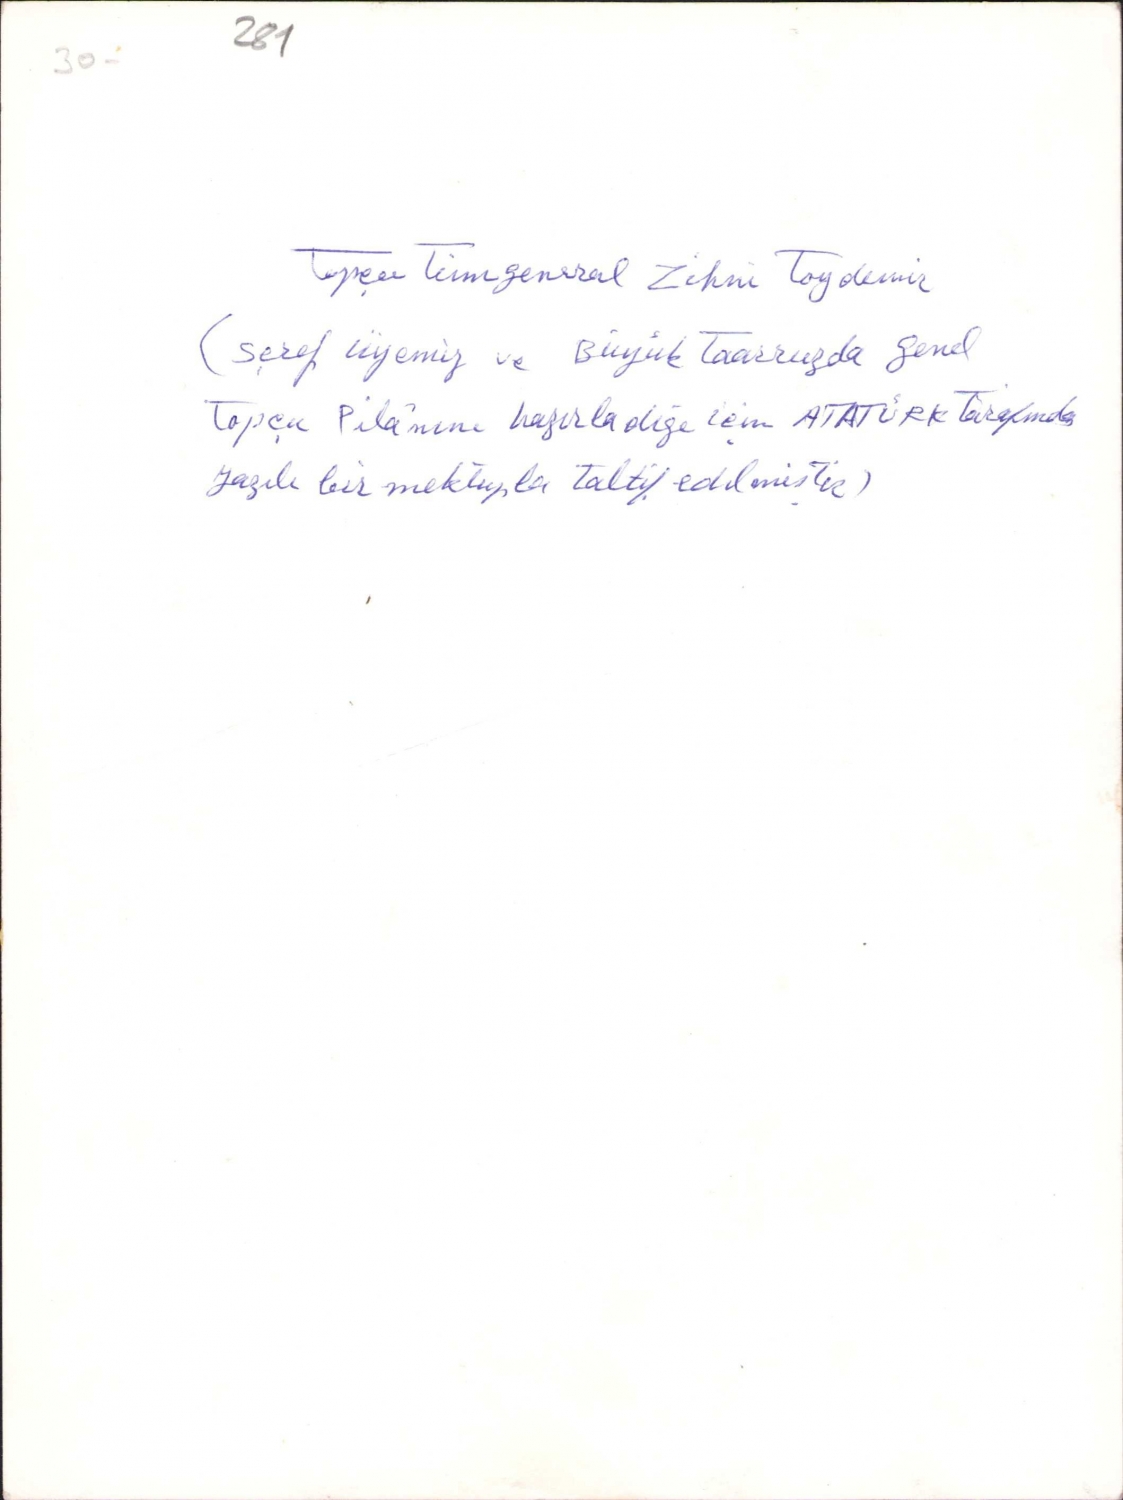 30-
281
Topçu Tümgeneral Zihni Toydemir
(Şeref üyemiz ve Büyük Taarruzda genel
Topçu Pilânını hazırladığı için ATATÜRK tarafında
yazılı bir mektupla taltif edilmiştir)